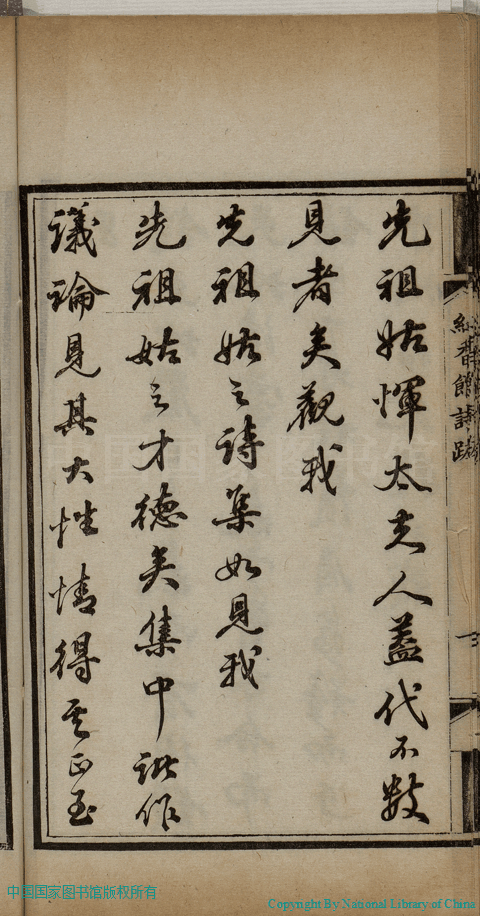 先祖姑惲太夫人蓋代不數
見者矣觀我
先祖姑之詩集如見我
先祖姑之才德矣集中諸作
議論見其大性情得其正至
紅香館詩跋
中国国家图书馆版权所有
Copyright By National Library of China